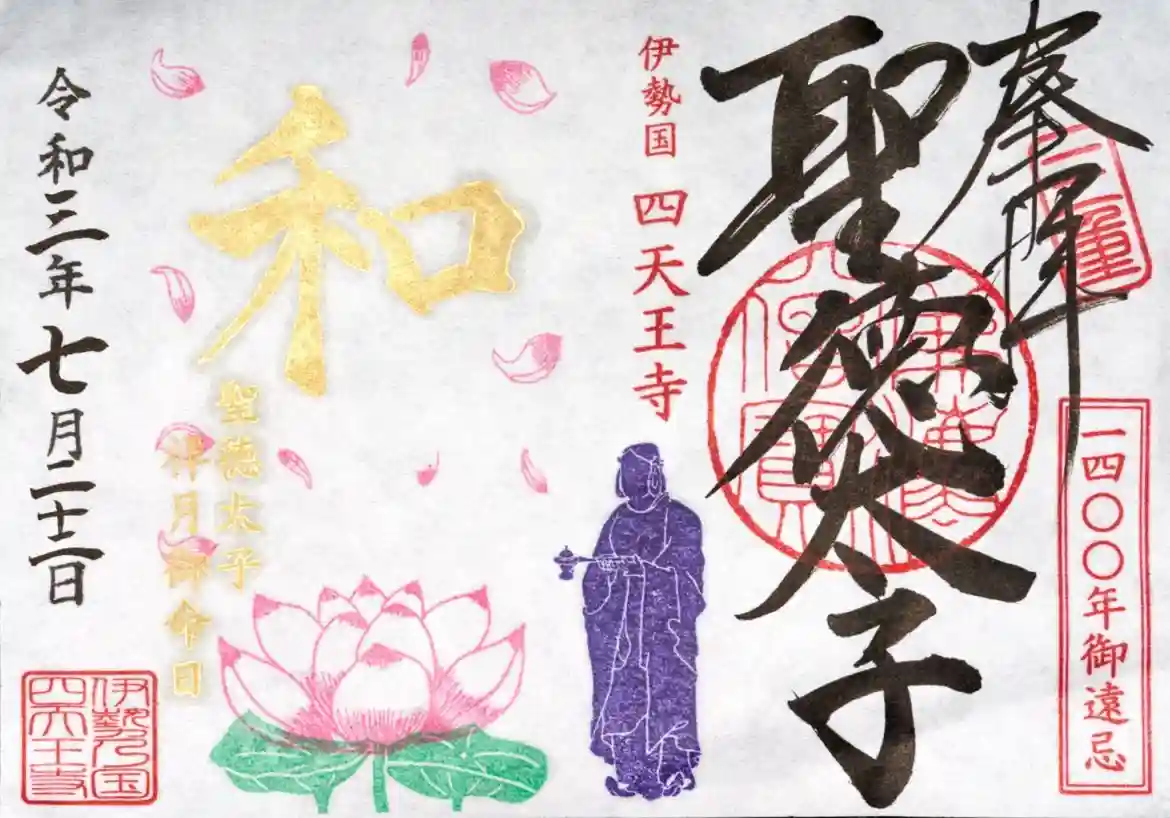 奉拝
三重
一四〇〇年御遠忌
聖徳太子
伊勢国 四天王寺
和
聖徳太子
祥月御命日
令和三年七月二十二日
伊勢乃国
四天王寺